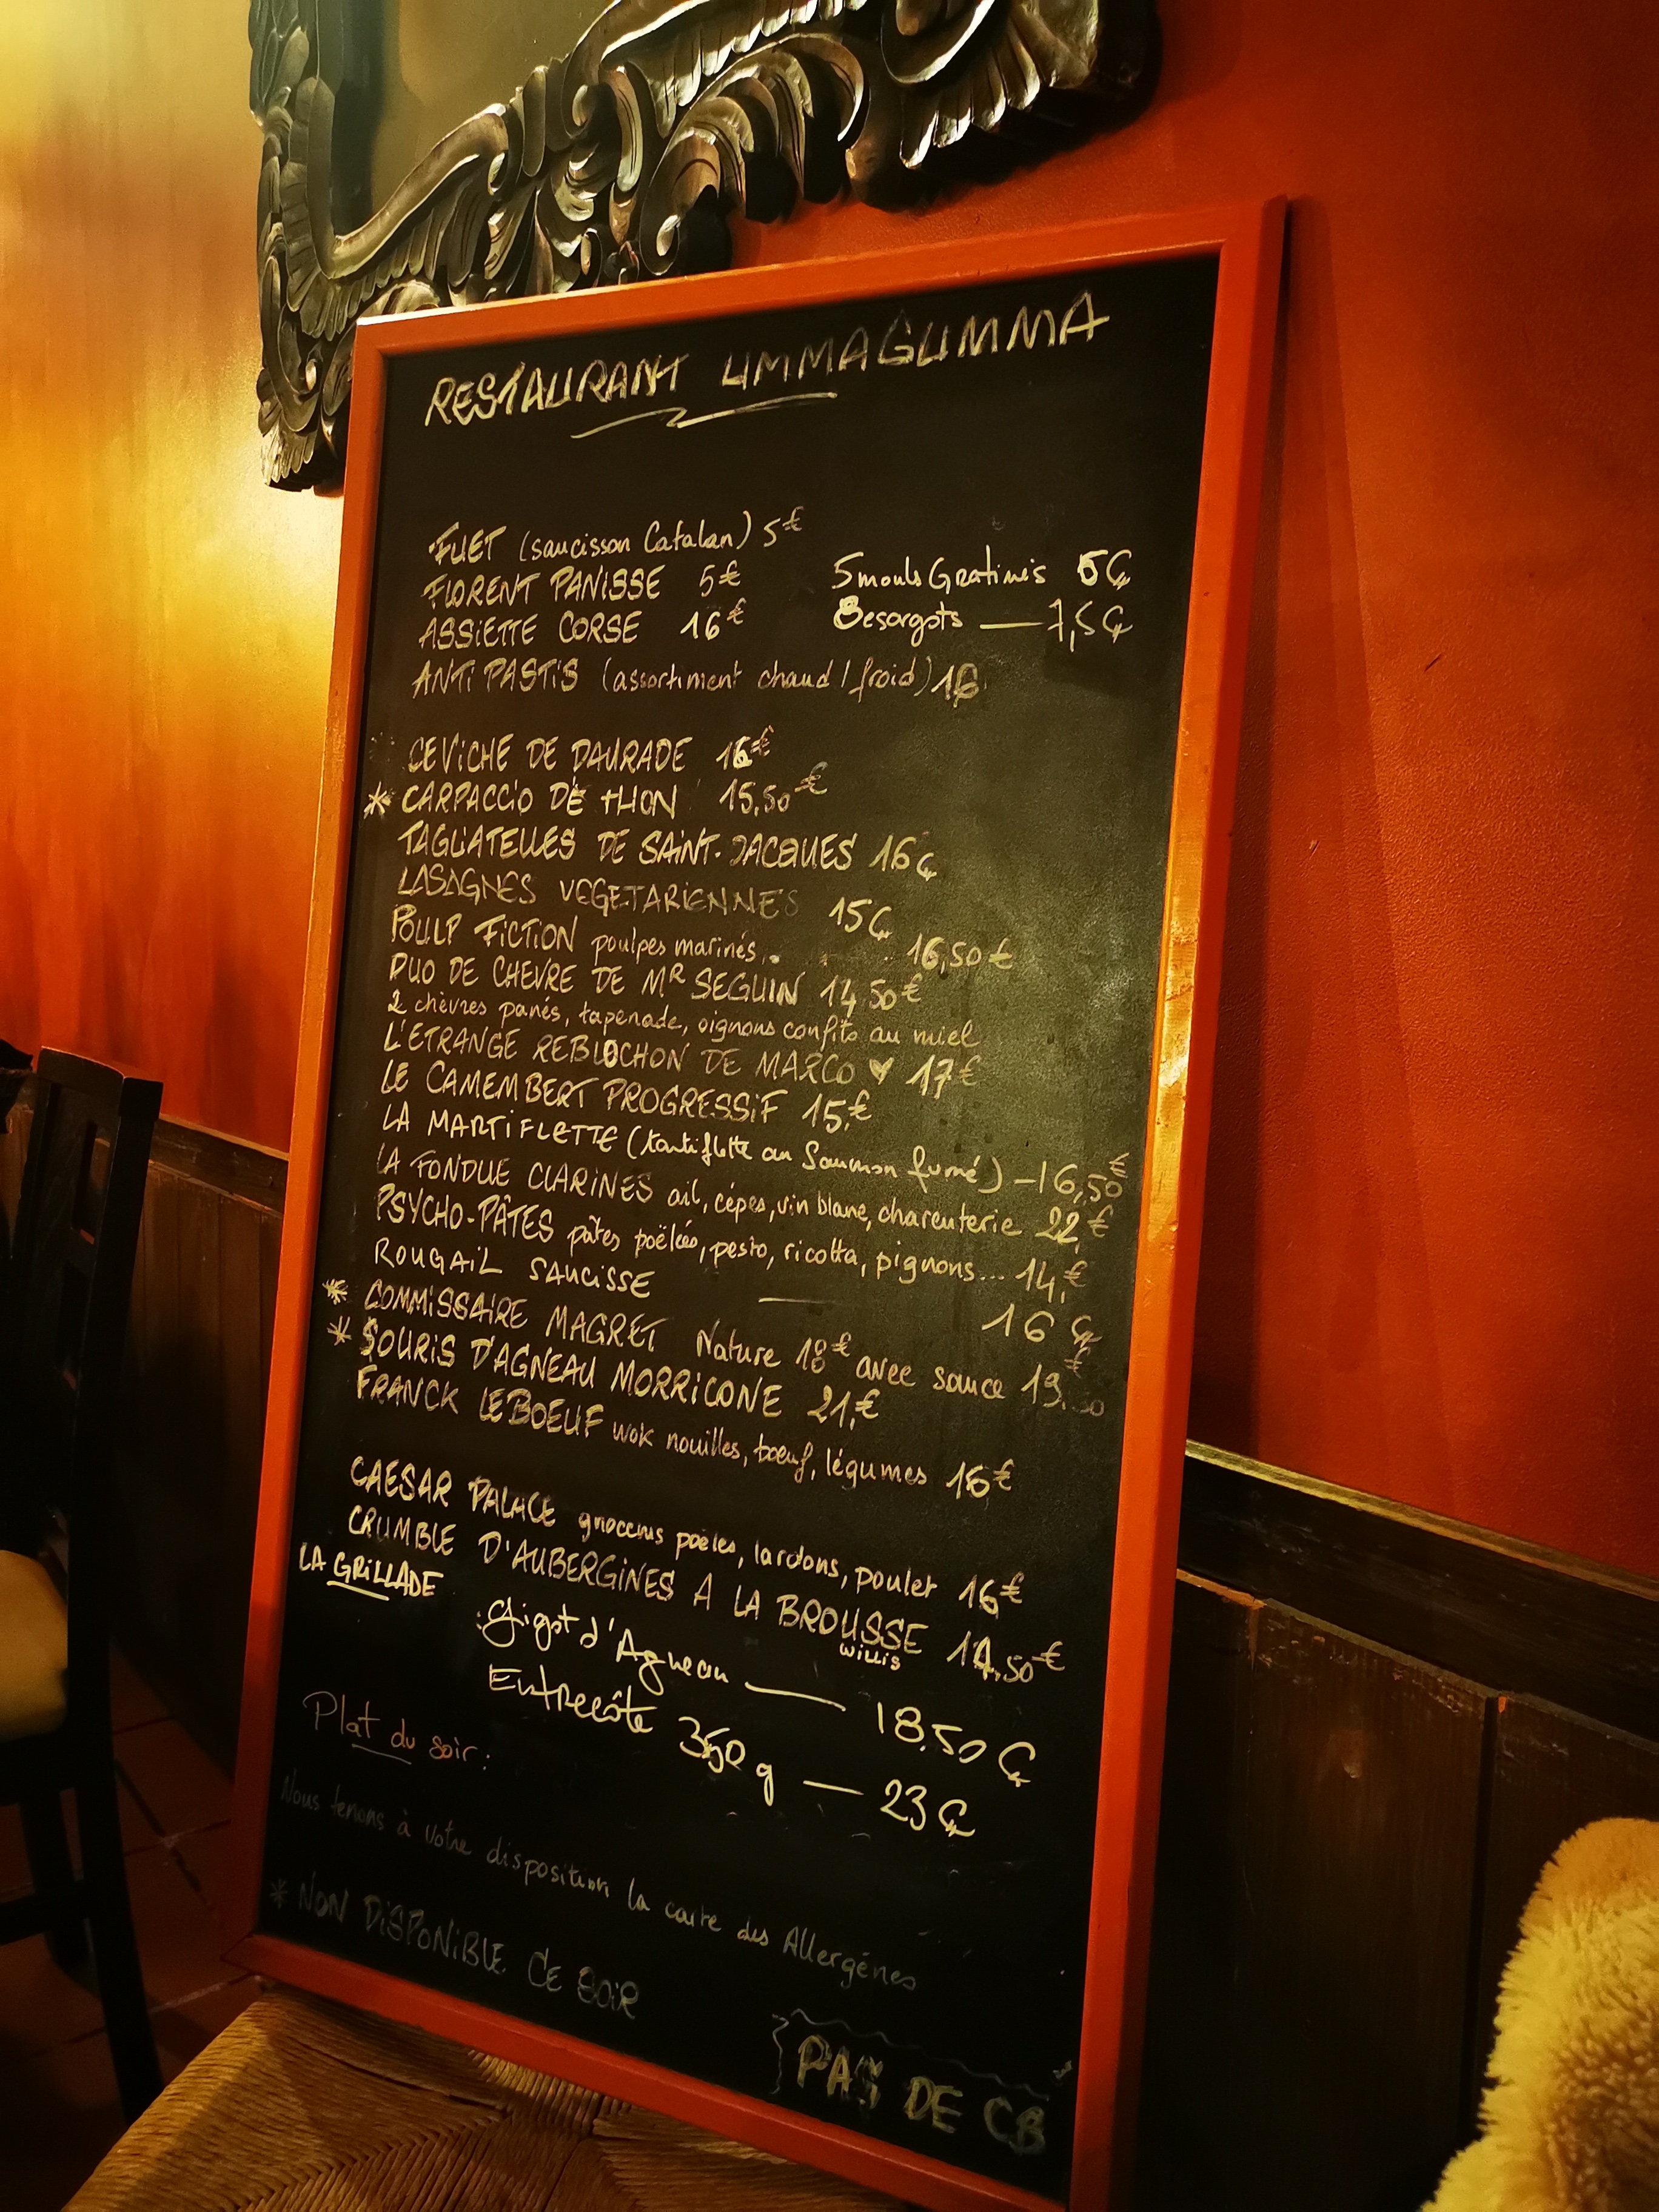 RESTAURANT UMMAGUMMA
FUET (saucisson Catalan) 5€
FLORENT PANISSE 5€
5 mouls Gratinés 6€
ASSIETTE CORSE 16€
8 escargots — 7,5€
ANTI PASTIS (assortiment chaud / froid) 16
CEVICHE DE DAURADE 16€
* CARPACCIO DE THON 15,50€
TAGLIATELLES DE SAINT-JACQUES 16€
LASAGNES VEGETARIENNES 15€
POULP FICTION poulpes marinés... 16,50€
DUO DE CHEVRE DE MR SEGUIN 14,50€
2 chèvres panés, tapenade, oignons confits au miel
L'ETRANGE REBLOCHON DE MARCO ♥ 17€
LE CAMEMBERT PROGRESSIF 15,€
LA MARTIFLETTE (tartiflette au Saumon fumé) – 16,50€
LA FONDUE CLARINES ail, cépes, vin blanc, charcuterie 22,€
PSYCHO-PÂTES pâtes poëlées, pesto, ricotta, pignons... 14,€
ROUGAIL SAUCISSE — 16€
* COMMISSAIRE MAGRET Nature 18€ avec sauce 19,50€
* SOURIS D'AGNEAU MORRICONE 21,€
FRANCK LEBOEUF wok nouilles, boeuf, légumes 16€
CAESAR PALACE poëles, lardons, poulet 16,€
CRUMBLE D'AUBERGINES A LA BROUSSE 14,50€
willis
LA GRILLADE
Gigot d'Agneau — 18,50€
Entrecôte 350 g — 23€
Plat du soir :
Nous tenons à votre disposition la carte des Allergénes
* NON DISPONIBLE CE SOIR
PAS DE CB